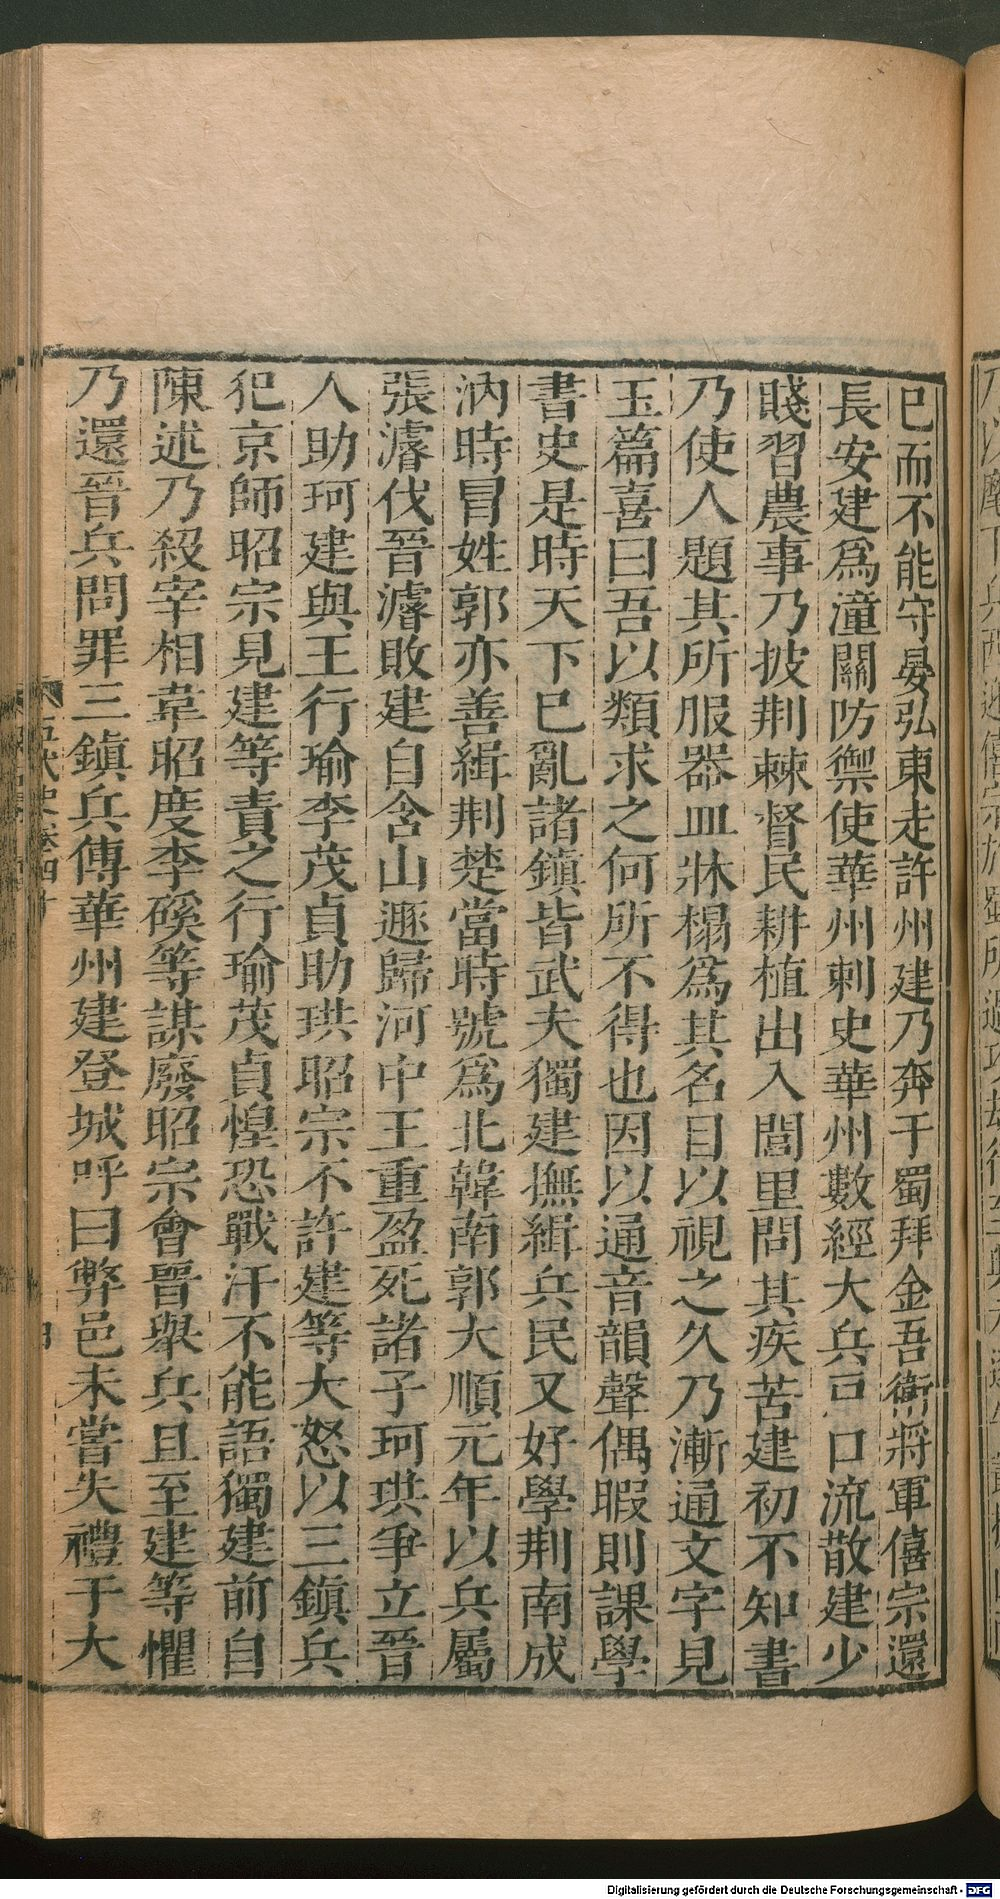 已而不能守晏弘東走許州建乃奔于蜀拜金吾衛將軍僖宗還
長安建爲潼關防禦使華州刺史華州數經大兵戸口流散建少
賤習農事乃披荆棘督民耕植出入閭里問其疾苦建初不知書
乃使人題其所服器皿牀榻爲其名目以視之久乃漸通文字見
玉篇喜曰吾以類求之何所不得也因以通音韻聲偶暇則課學
書史是時天下已亂諸鎮皆武夫獨建撫緝兵民又好學荆南成
汭時冒姓郭亦善緝荆楚當時號爲北韓南郭大順元年以兵屬
張濬伐晉濬敗建自含山遯歸河中王重盈死諸子珂珙爭立晉
人助珂建與王行瑜李茂貞助珙昭宗不許建等大怒以三鎮兵
犯京師昭宗見建等責之行瑜茂貞惶恐戰汗不能語獨建前自
陳述乃殺宰相韋昭度李磎等謀廢昭宗會晉舉兵且至建等懼
乃還晉兵問罪三鎮兵傅華州建登城呼曰弊邑未嘗失禮于大
五代史卷四十
四
Digitalisierung gefördert durch die Deutsche Forschungsgemeinschaft - DFG